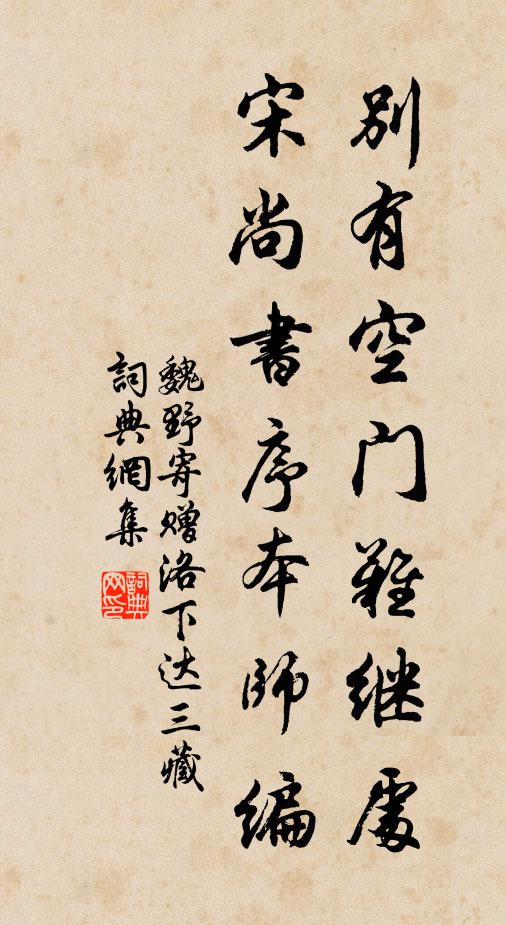 别有空门難继處
宋尚書序本師編
魏野寄赠洛下达三藏
詞典網集
詞典网印